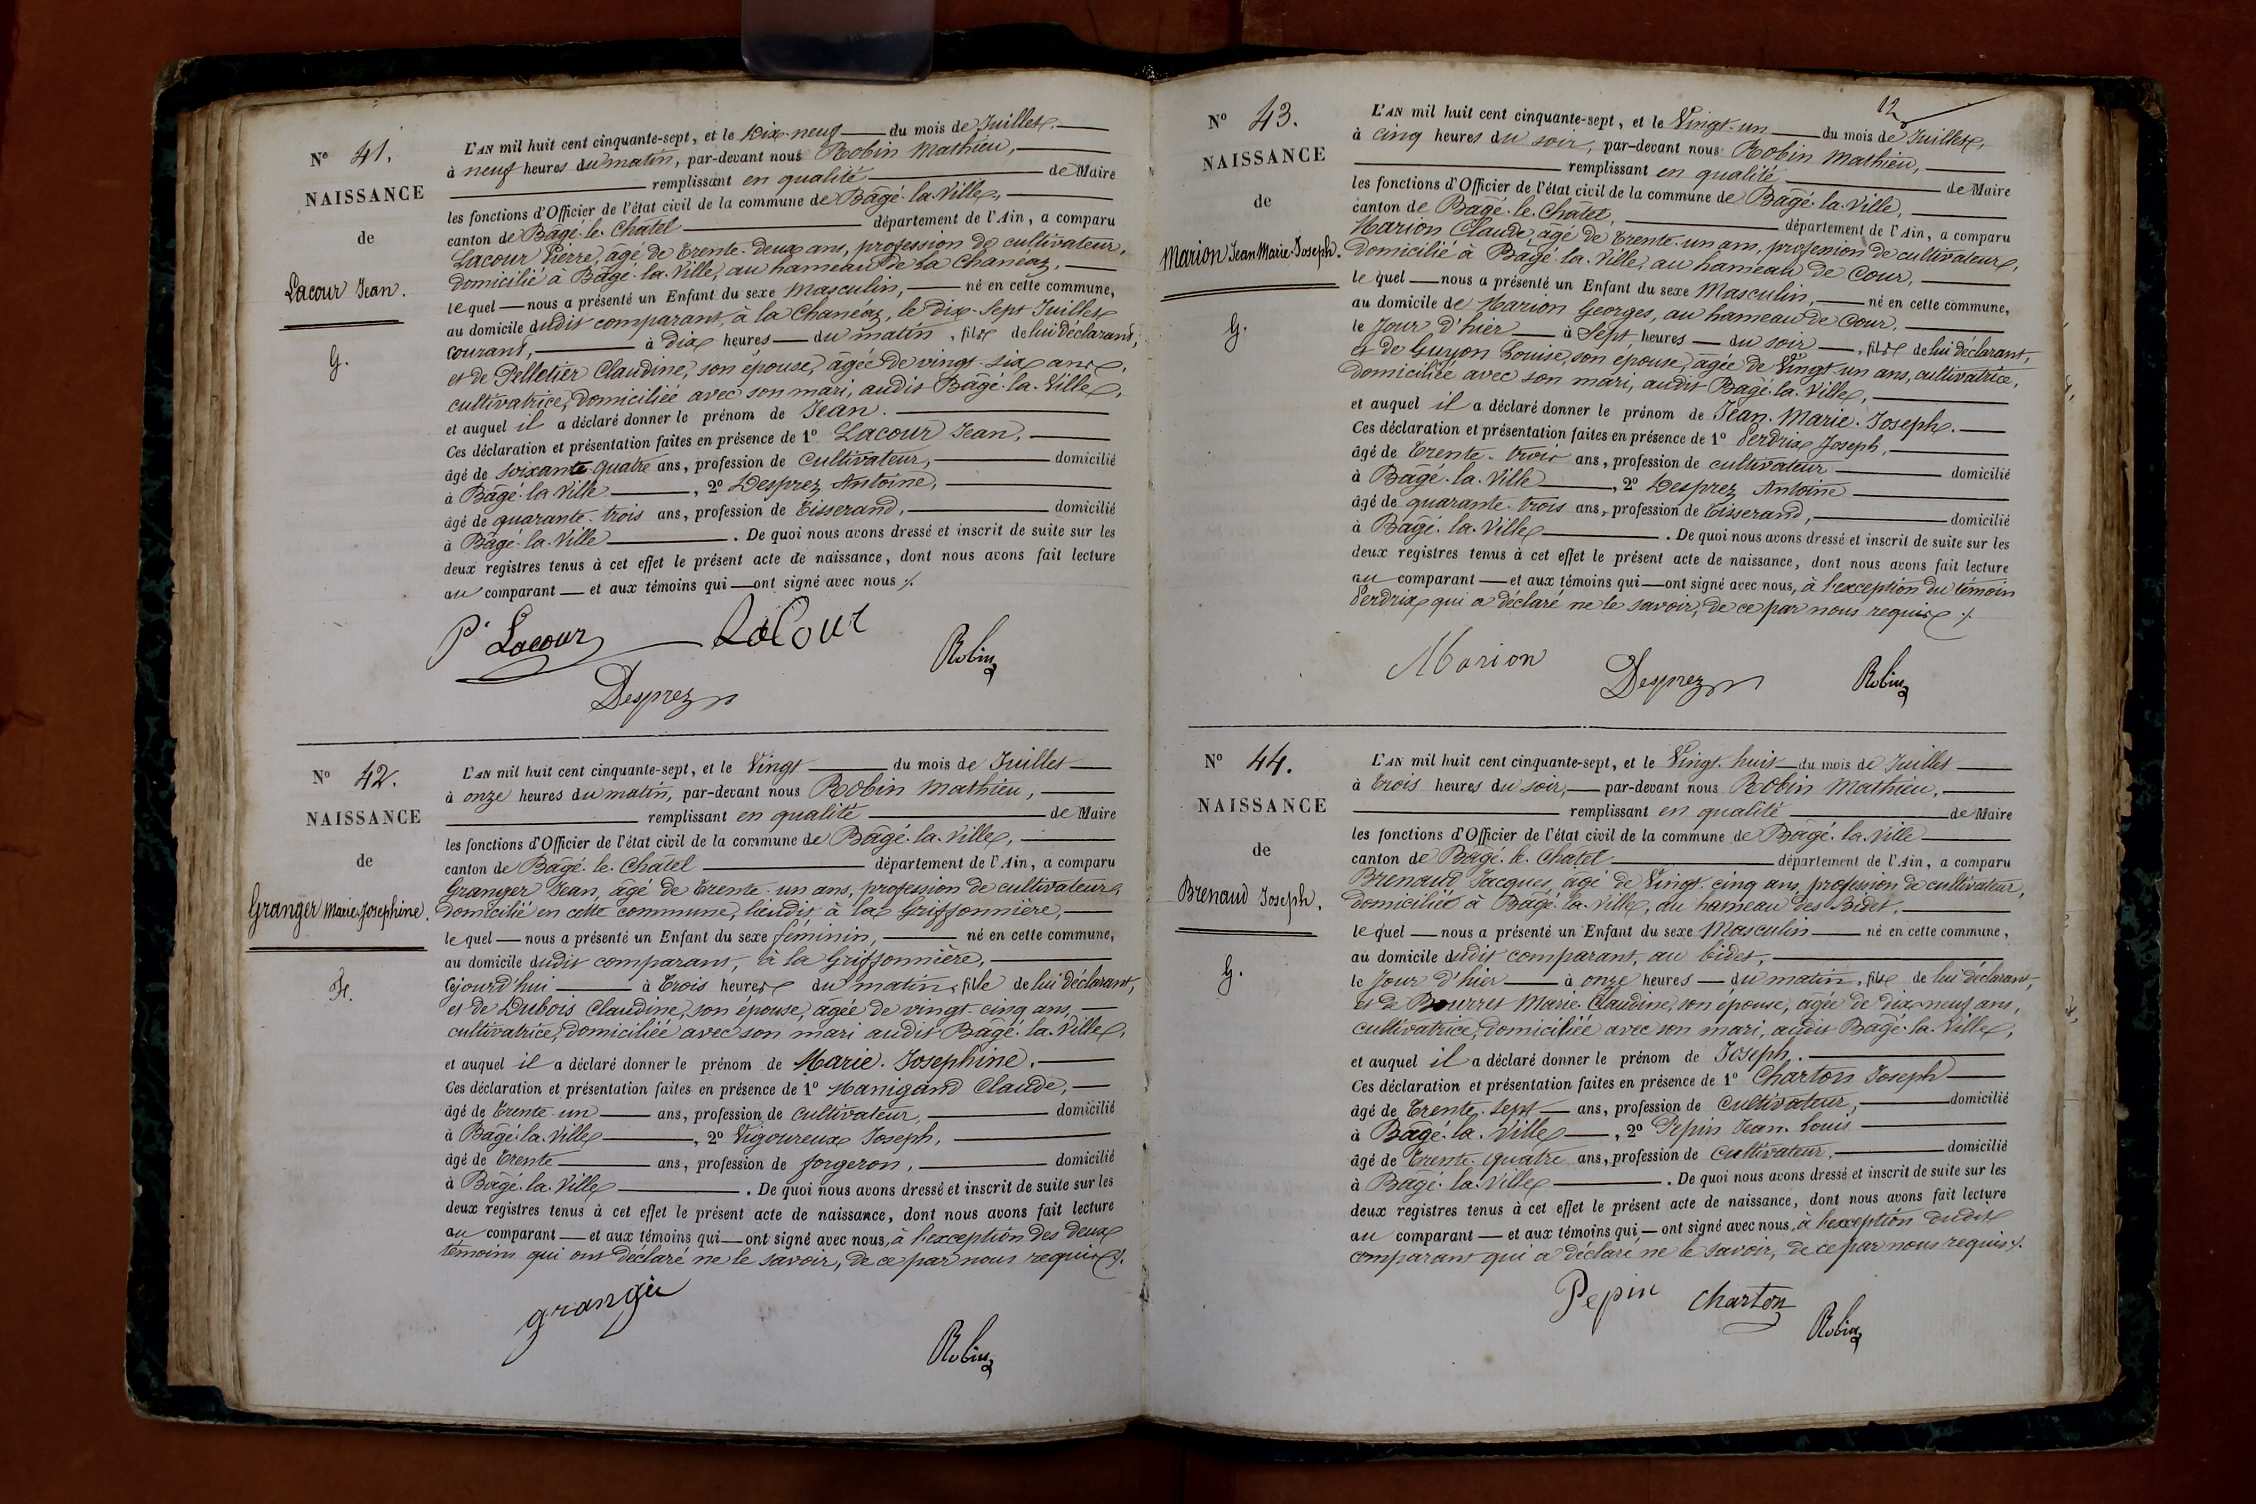 N° 41.
NAISSANCE
de
Lacour Jean.
G.
L'AN mil huit cent cinquante-sept, et le Dix-neuf du mois de Juillet,
à neuf heures du matin, par-devant nous Robin Mathieu,
remplissant en qualité de Maire
les fonctions d'Officier de l'état civil de la commune de Bâgé-la-Ville,
canton de Bâgé-le-Chatel département de l'Ain, a comparu
Lacour Pierre, âgé de trente-deux ans, profession de cultivateur,
domicilié à Bâgé-la-Ville, au hameau de la Chanéaz,
lequel nous a présenté un Enfant du sexe Masculin, né en cette commune,
au domicile dudit comparant, à la Chanéaz, le dix-sept Juillet
courant, à dix heures du matin, fils de lui déclarant,
et de Pelletier Claudine, son épouse, âgée de vingt-six ans,
cultivatrice, domiciliée avec son mari, audit Bâgé-la-Ville,
et auquel il a déclaré donner le prénom de Jean.
Ces déclaration et présentation faites en présence de 1° Lacour Jean,
âgé de soixante-quatre ans, profession de Cultivateur, domicilié
à Bâgé-la-Ville, 2° Desprez Antoine,
âgé de quarante-trois ans, profession de Tisserand, domicilié
à Bâgé-la-Ville. De quoi nous avons dressé et inscrit de suite sur les
deux registres tenus à cet effet le présent acte de naissance, dont nous avons fait lecture
au comparant et aux témoins qui ont signé avec nous ./.
P. Lacour LaCour
Robin
Desprez
N° 42.
NAISSANCE
de
Granger Marie-Josephine.
F.
L'AN mil huit cent cinquante-sept, et le Vingt du mois de Juillet
à onze heures du matin, par-devant nous Robin Mathieu,
remplissant en qualité de Maire
les fonctions d'Officier de l'état civil de la commune de Bâgé-la-Ville,
canton de Bâgé-le-Chatel département de l'Ain, a comparu
Granger Jean, âgé de trente-un ans, profession de cultivateur,
domicilié en cette commune, lieudit à la Griffonnière,
lequel nous a présenté un Enfant du sexe féminin, né en cette commune,
au domicile dudit comparant, à la Griffonnière,
cejourd'hui à trois heures du matin, fille de lui déclarant,
et de Dubois Claudine, son épouse, âgée de vingt-cinq ans,
cultivatrice, domiciliée avec son mari audit Bâgé-la-Ville,
et auquel il a déclaré donner le prénom de Marie-Josephine.
Ces déclaration et présentation faites en présence de 1° Manigand Claude,
âgé de trente-un ans, profession de cultivateur, domicilié
à Bâgé-la-Ville, 2° Vigoureux Joseph,
âgé de trente ans, profession de forgeron, domicilié
à Bâgé-la-Ville. De quoi nous avons dressé et inscrit de suite sur les
deux registres tenus à cet effet le présent acte de naissance, dont nous avons fait lecture
au comparant et aux témoins qui ont signé avec nous, à l'exception des deux
témoins qui ont déclaré ne le savoir, de ce par nous requis ./.
grangér
Robin
12
N° 43.
NAISSANCE
de
Marion Jean Marie-Joseph.
G.
L'AN mil huit cent cinquante-sept, et le Vingt-un du mois de Juillet,
à cinq heures du soir, par-devant nous Robin Mathieu,
remplissant en qualité de Maire
les fonctions d'Officier de l'état civil de la commune de Bâgé-la-Ville,
canton de Bâgé-le-Châtel, département de l'Ain, a comparu
Marion Claude, âgé de trente-un ans, profession de cultivateur,
domicilié à Bâgé-la-Ville, au hameau de Cour,
lequel nous a présenté un Enfant du sexe Masculin, né en cette commune,
au domicile de Marion Georges, au hameau de Cour,
le Jour d'hier à Sept heures du soir, fils de lui déclarant,
et de Guyon Louise, son épouse, âgée de Vingt-un ans, cultivatrice,
domiciliée avec son mari, audit Bâgé-la-Ville,
et auquel il a déclaré donner le prénom de Jean-Marie-Joseph.
Ces déclaration et présentation faites en présence de 1° Perdrix Joseph,
âgé de trente-trois ans, profession de cultivateur domicilié
à Bâgé-la-Ville, 2° Desprez Antoine
âgé de quarante-trois ans, profession de Tisserand, domicilié
à Bâgé-la-Ville. De quoi nous avons dressé et inscrit de suite sur les
deux registres tenus à cet effet le présent acte de naissance, dont nous avons fait lecture
au comparant et aux témoins qui ont signé avec nous, à l'exception du témoin
Perdrix qui a déclaré ne le savoir, de ce par nous requis ./.
Marion Desprez Robin
N° 44.
NAISSANCE
de
Brenaud Joseph.
G.
L'AN mil huit cent cinquante-sept, et le Vingt-huit du mois de Juillet
à trois heures du soir, par-devant nous Robin Mathieu,
remplissant en qualité de Maire
les fonctions d'Officier de l'état civil de la commune de Bâgé-la-Ville
canton de Bâgé-le-Chatel département de l'Ain, a comparu
Brenaud Jacques, âgé de Vingt-cinq ans, profession de cultivateur,
domicilié à Bâgé-la-Ville, au hameau des Bidet,
lequel nous a présenté un Enfant du sexe Masculin né en cette commune,
au domicile dudit comparant, au bidet,
le Jour d'hier à onze heures du matin, fils de lui déclarant,
et de Bourret Marie-Claudine, son épouse, âgée de dix-neuf ans,
cultivatrice, domiciliée avec son mari, audit Bâgé-la-Ville,
et auquel il a déclaré donner le prénom de Joseph.
Ces déclaration et présentation faites en présence de 1° Charton Joseph
âgé de trente-sept ans, profession de Cultivateur, domicilié
à Bâgé-la-Ville, 2° Pepin Jean-Louis
âgé de trente-quatre ans, profession de cultivateur, domicilié
à Bâgé-la-Ville. De quoi nous avons dressé et inscrit de suite sur les
deux registres tenus à cet effet le présent acte de naissance, dont nous avons fait lecture
au comparant et aux témoins qui ont signé avec nous, à l'exception dudit
comparant qui a déclaré ne le savoir, de ce par nous requis ./.
Pepin Charton
Robin